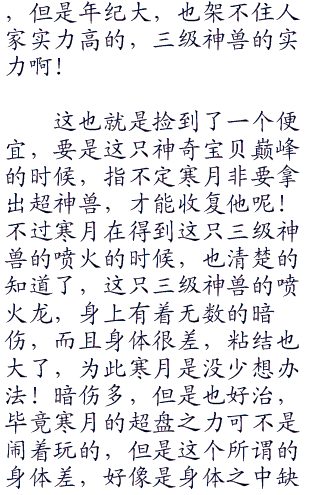 ，但是年纪大，也架不住人
家实力高的，三级神兽的实
力啊！
这也就是捡到了一个便
宜，要是这只神奇宝贝巅峰
的时候，指不定寒月非要拿
出超神兽，才能收复他呢！
不过寒月在得到这只三级神
兽的喷火的时候，也清楚的
知道了，这只三级神兽的喷
火龙，身上有着无数的暗
伤，而且身体很差，粘结也
大了，为此寒月是没少想办
法！暗伤多，但是也好治，
毕竟寒月的超盘之力可不是
闹着玩的，但是这个所谓的
身体差，好像是身体之中缺